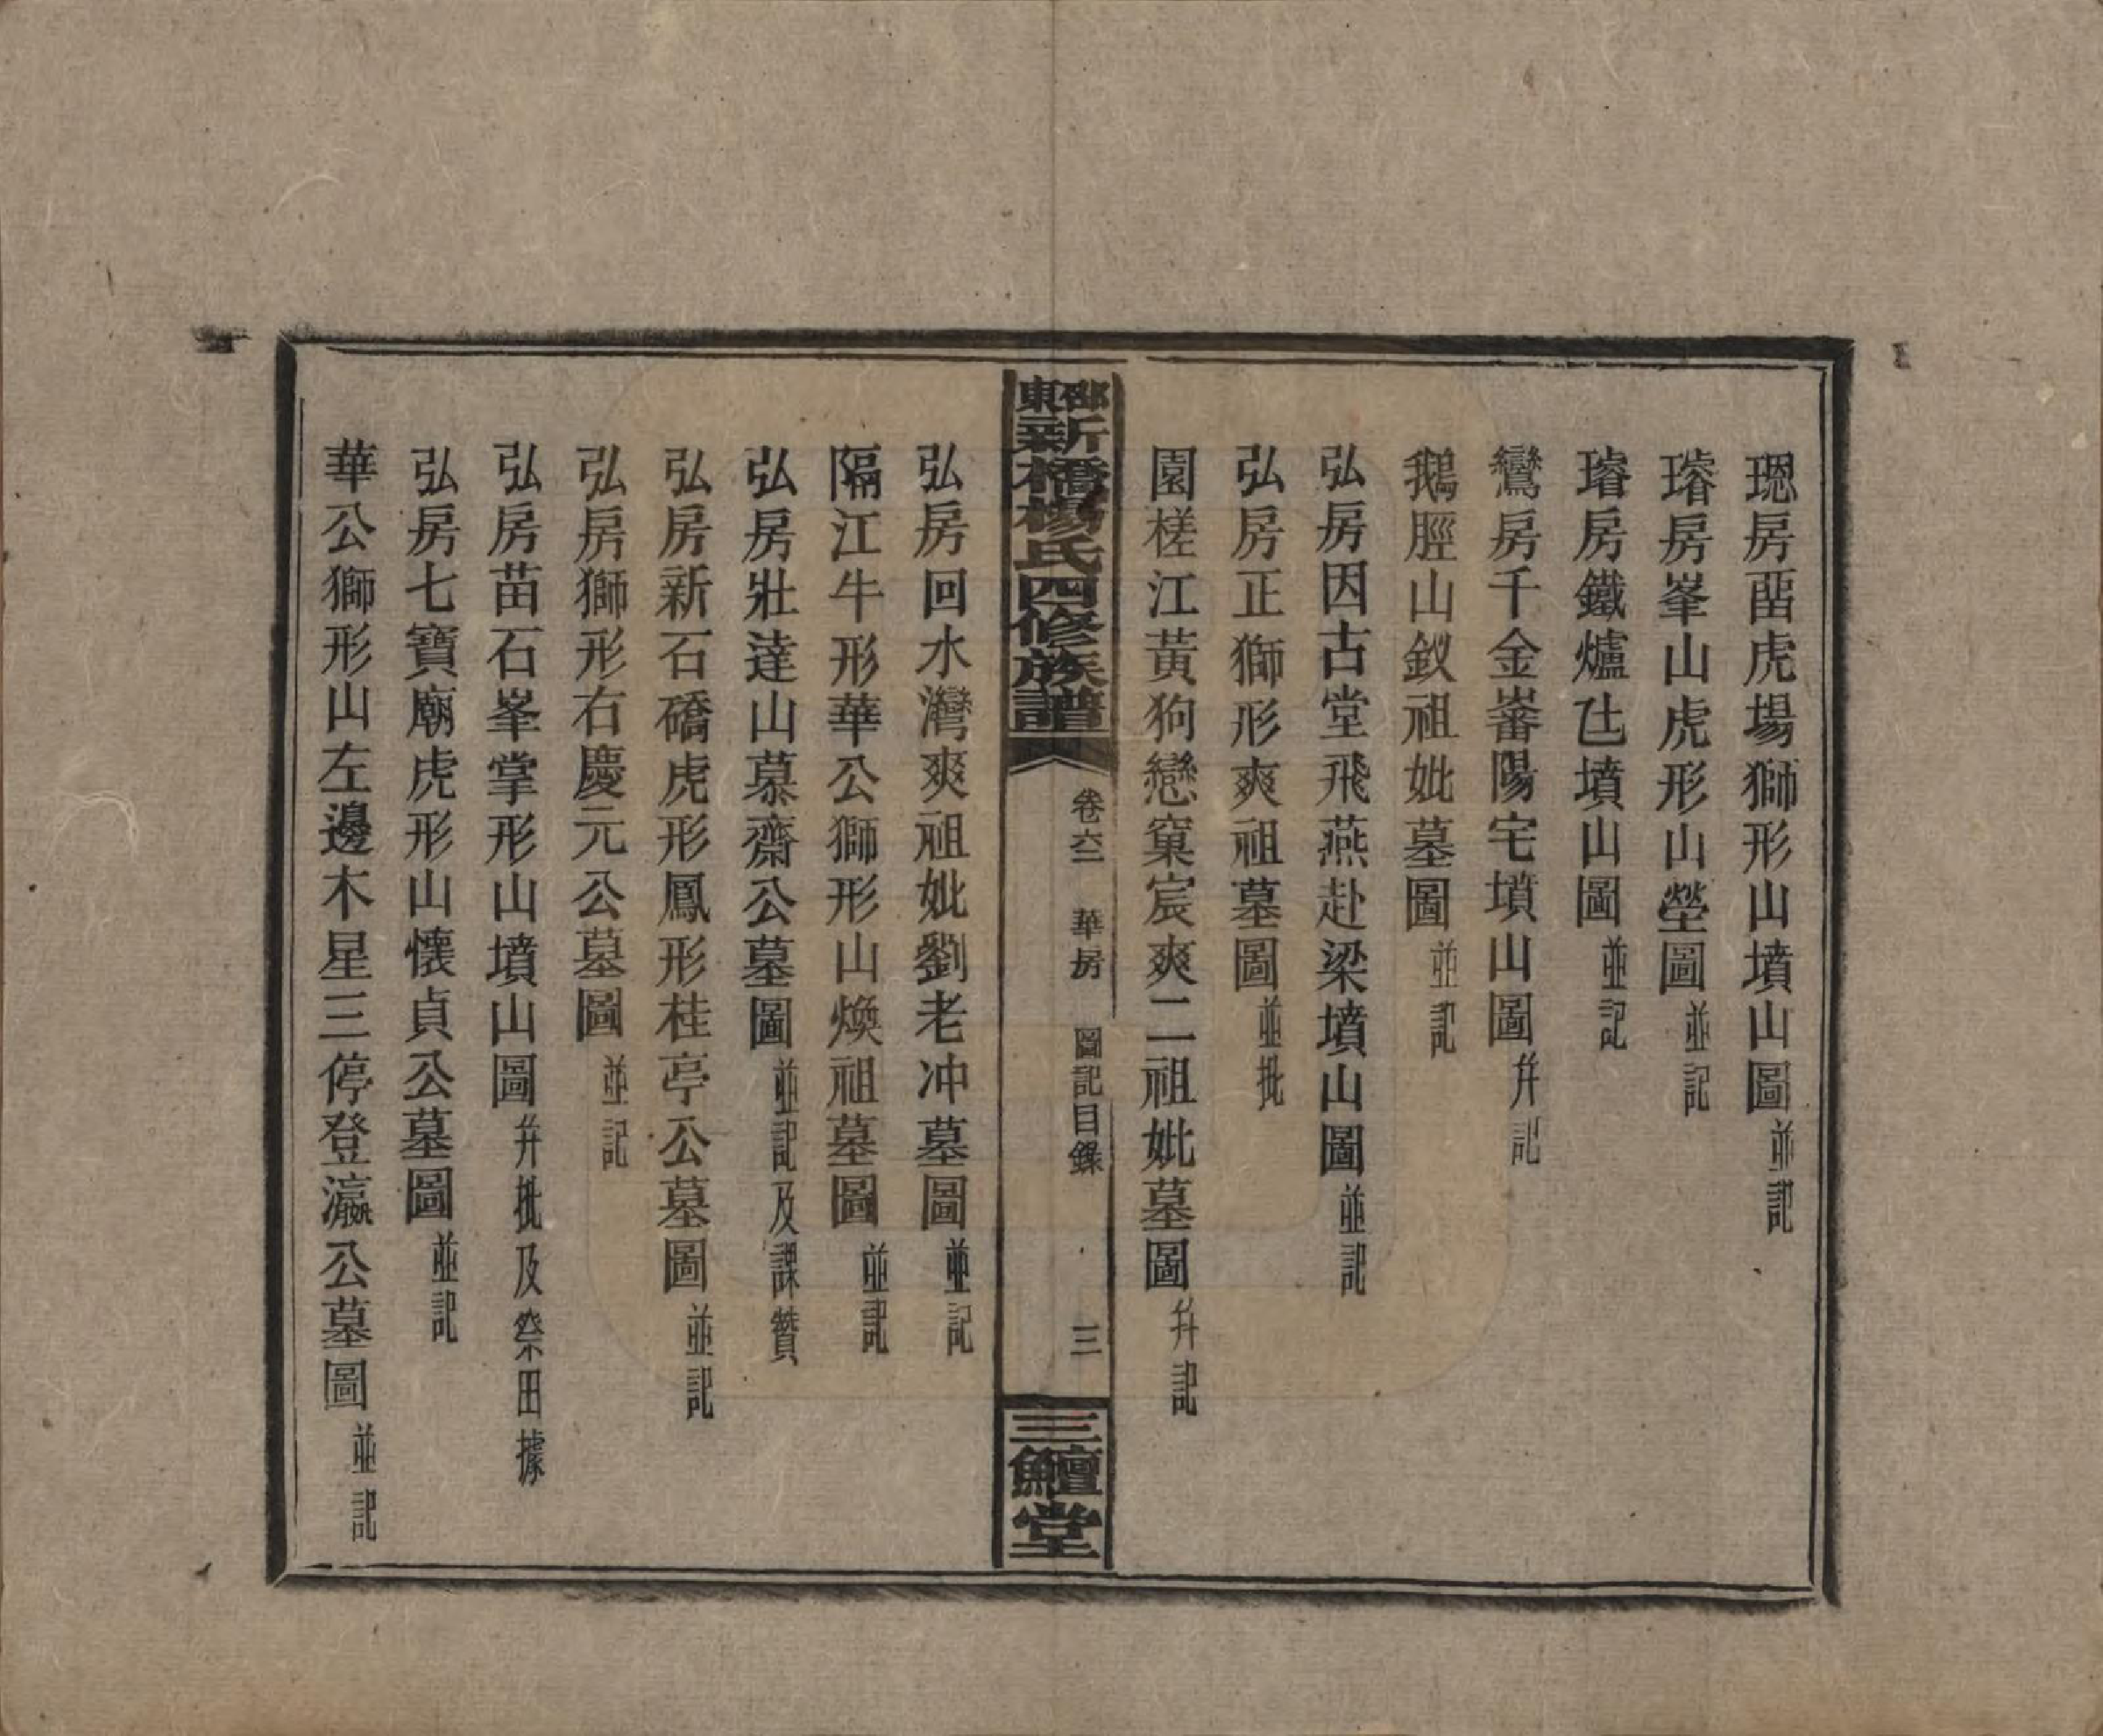 璁房畱虎場獅形山墳山圖並記
璿房峯山虎形山塋圖並記
璿房鐵爐㐌墳山圖並記
鸞房千金嶓陽宅墳山圖幷記
鵝脛山釵祖妣墓圖並記
弘房因古堂飛燕赴梁墳山圖並記
弘房正獅形爽祖墓圖並批
園槎江黃狗戀窠宸爽二祖妣墓圖幷記
邵東新橋楊氏四修族譜
卷六二 華房 圖記目錄 三
三鱣堂
弘房回水灣爽祖妣劉老冲墓圖並記
隔江牛形華公獅形山煥祖墓圖並記
弘房壯達山慕齋公墓圖並記及課贊
弘房新石礄虎形鳳形桂亭公墓圖並記
弘房獅形右慶元公墓圖並記
弘房苗石峯掌形山墳山圖幷批及祭田據
弘房七寶廟虎形山懷貞公墓圖並記
華公獅形山左邊木星三停登瀛公墓圖並記